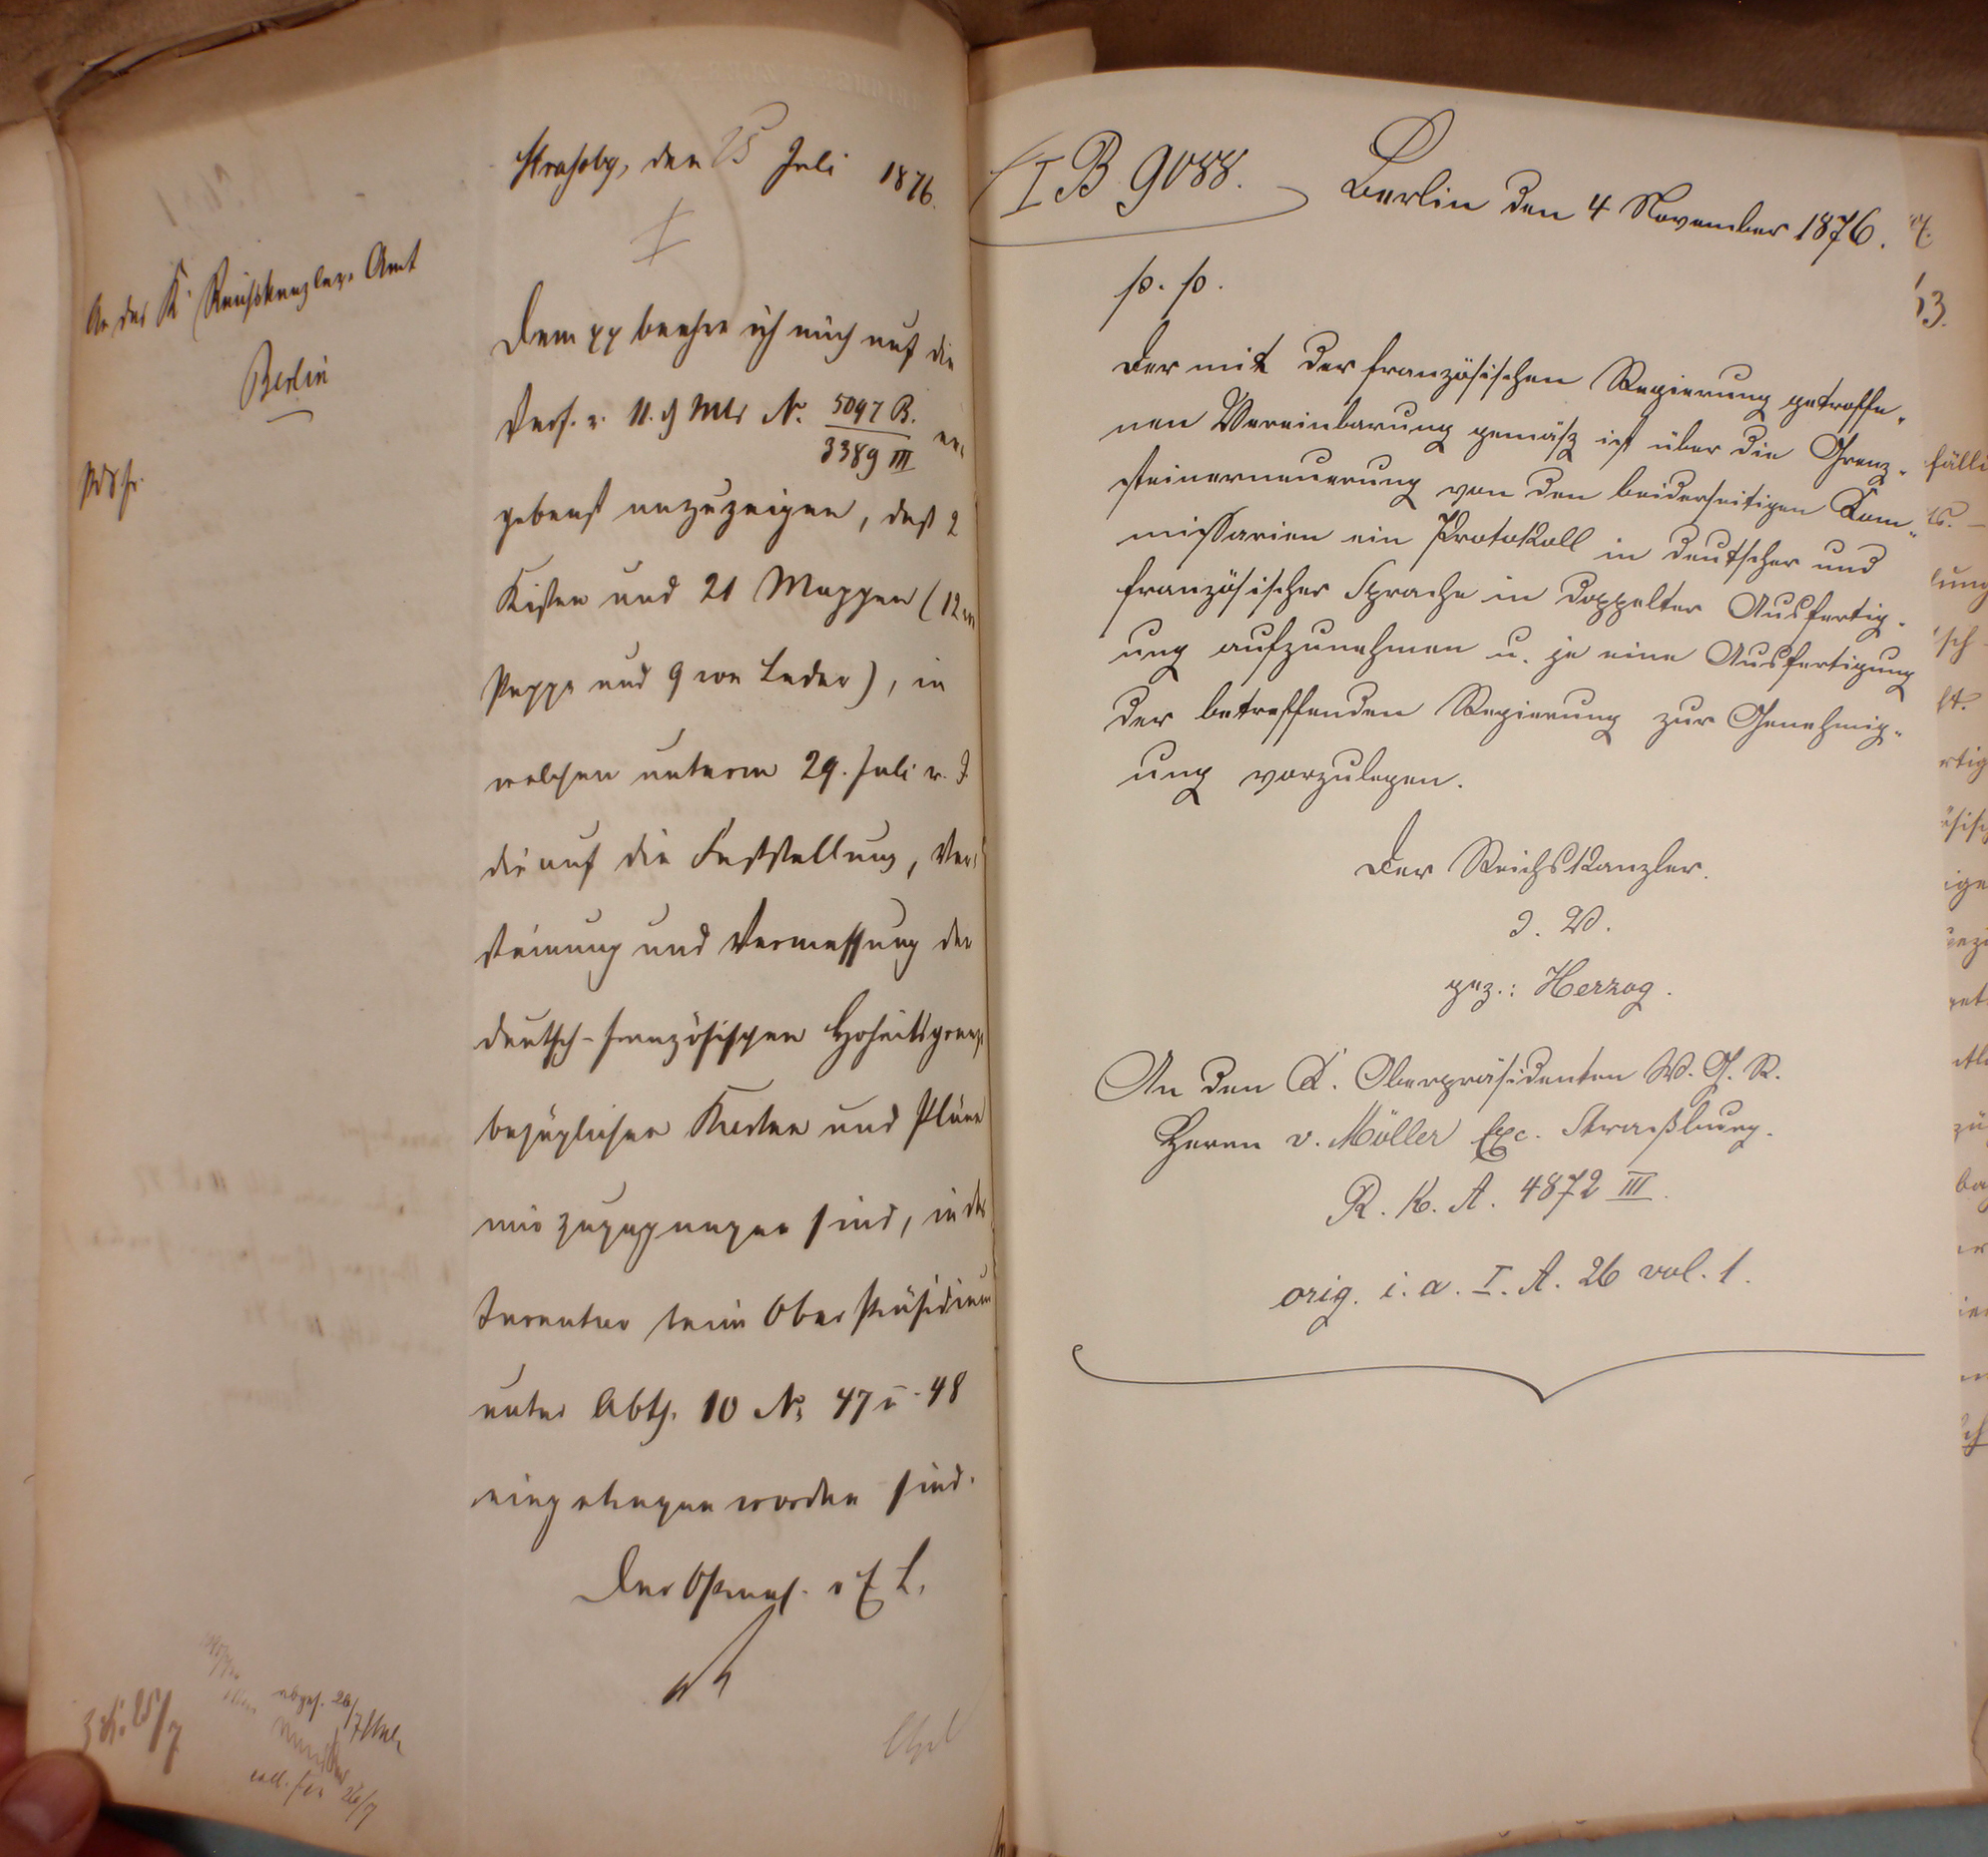 Strassbg, den 25 Juli 1876.
An das K. Reichskanzler-Amt
Berlin
Dem pp beehre ich mich auf die
Verf. v. 11. d Mts N. 5097 B. / 3389 III er-
gebenst anzuzeigen, daß 2
Kisten und 21 Mappen (12 von
Pappe und 9 von Leder), in
welchen unterm 29. Juli v. J.
die auf die Feststellung, Ver-
steinung und Vermessung der
deutsch-französischen Hoheitsgrenze
bezüglichen Karten und Pläne
mir zugegangen sind, in das
Inventar beim Ober Präsidium
unter Abth. 10 No 47 u. 48
eingetragen worden sind.
Der Obpräs. v E L.
abges. 26/7
coll. 26/7
I B 9088. Berlin den 4 November 1876.
p. p.
Der mit der französischen Regierung getroffe-
nen Vereinbarung gemäß ist über die Grenz-
steinerneuerung von den beiderseitigen Kom-
missarien ein Protokoll in deutscher und
französischer Sprache in doppelter Ausfertig-
ung aufzunehmen u. je eine Ausfertigung
der betreffenden Regierung zur Genehmig-
ung vorzulegen.
Der Reichskanzler.
I. V.
gez.: Herzog.
An den K. Oberpräsidenten W. G. R.
Herrn v. Möller Exc. Straßburg.
R. K. A. 4872 III.
orig. i. a. I. A. 26 vol. 1.